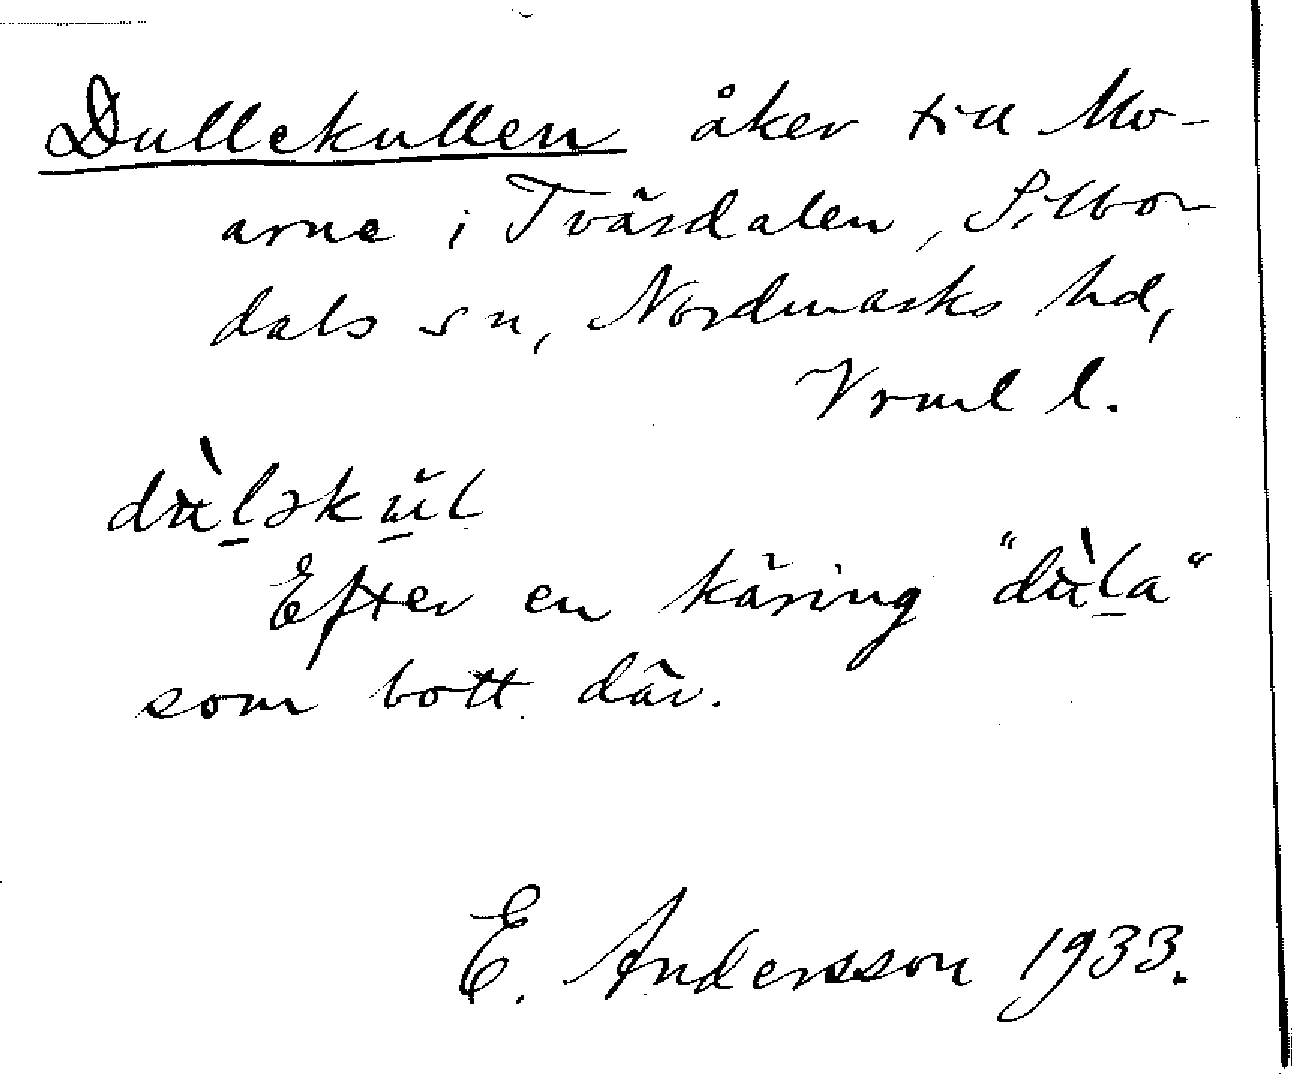 Dullekullen åker till Mo-
arna i Tvärdalen, Silbo-
dals sn, Nordmarks hd,
Vrml l.
dùl̠əkŭ̠l
Efter en käring "dùl̠a"
som bott där.
E. Andersson 1933.